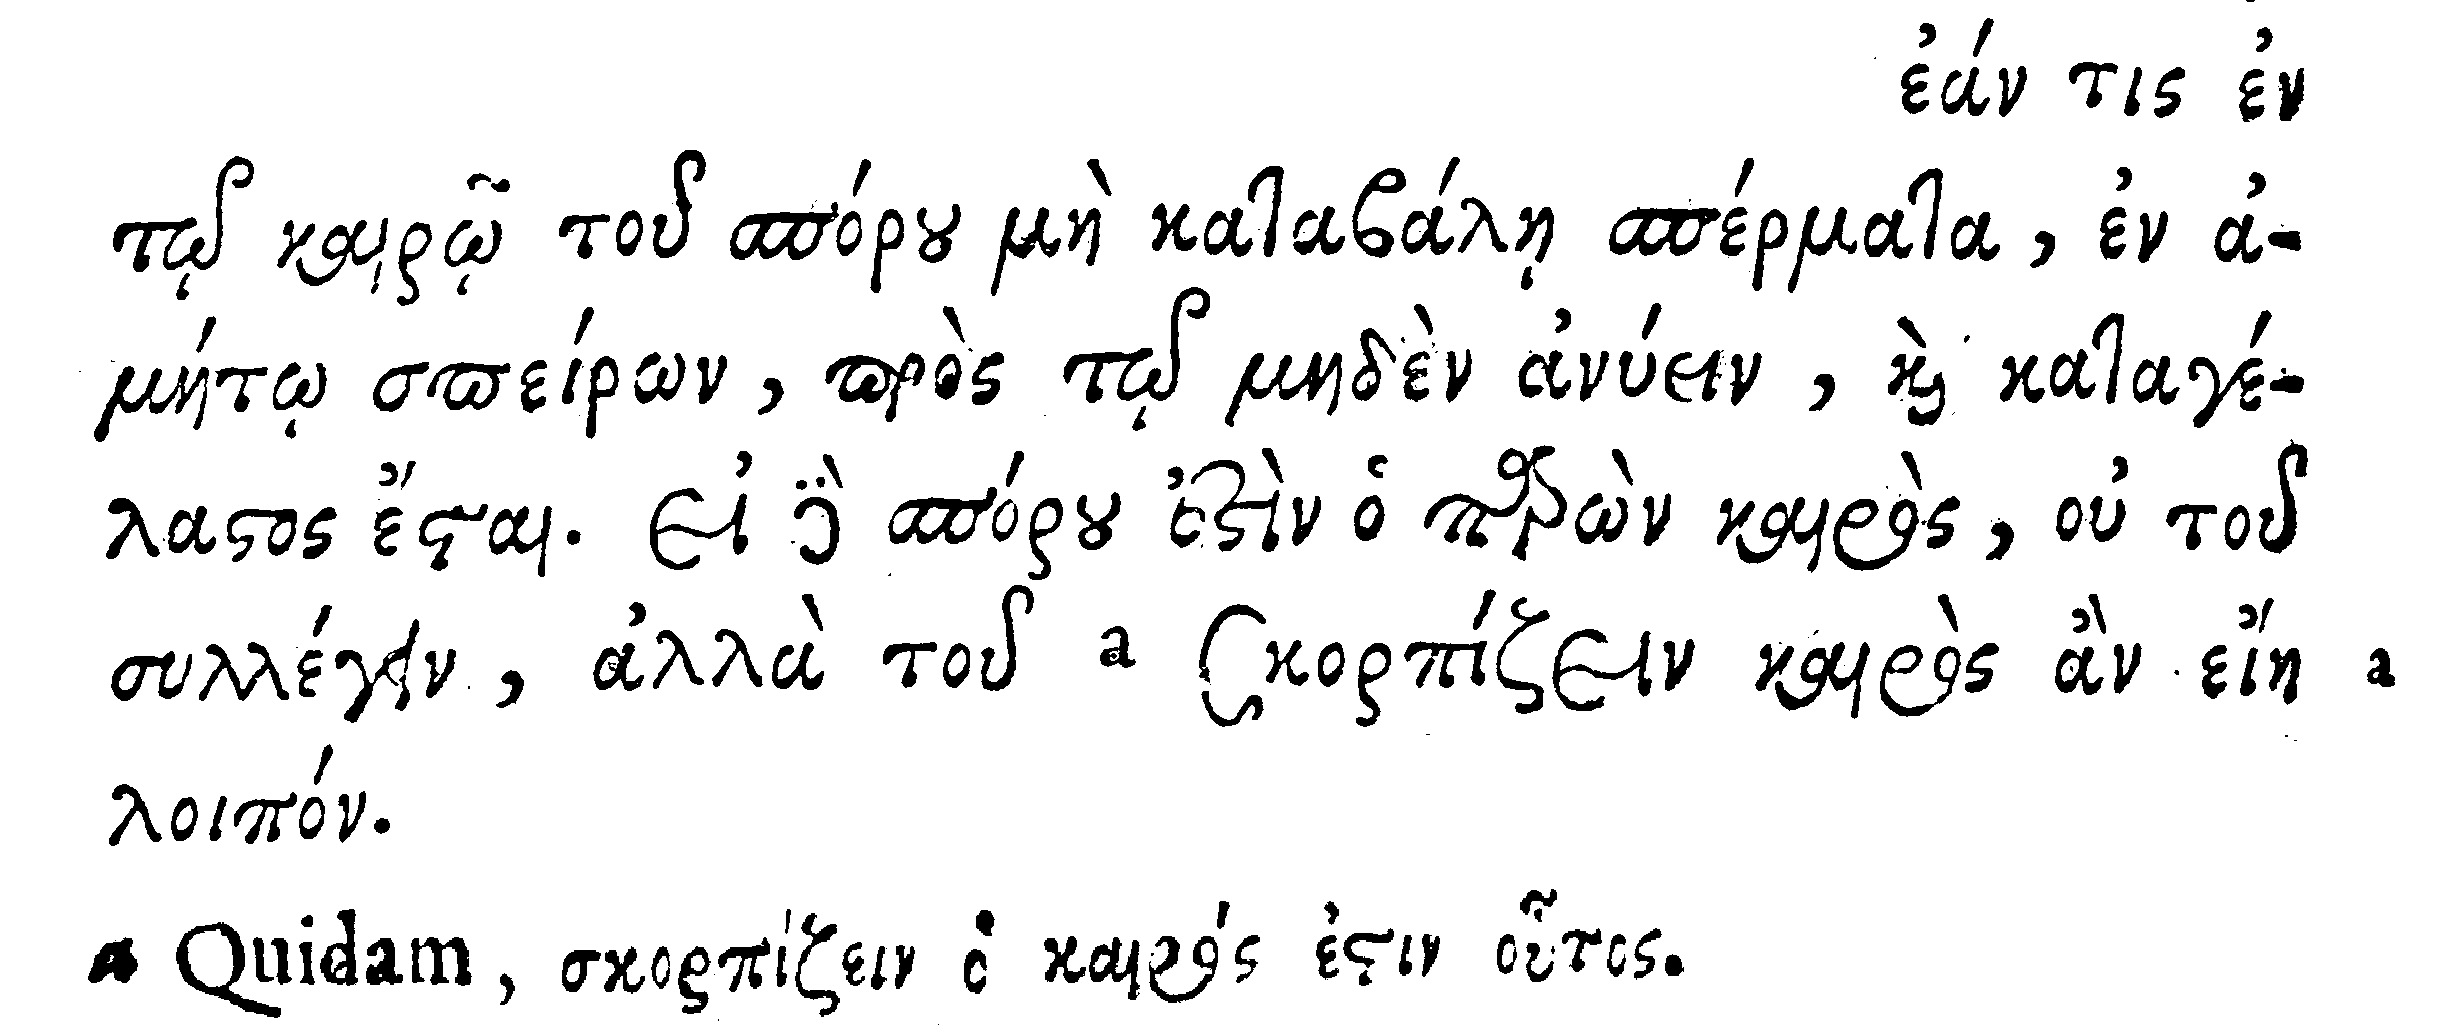 ἐάν τις ἐν
τῷ καιρῷ τοῦ σπόρου μὴ καταβάλῃ σπέρματα, ἐν ἀ-
μήτῳ σπείρων, πρὸς τῷ μηδὲν ἀνύειν, καὶ καταγέ-
λαστος ἔσται. εἰ δὲ σπόρου ἐστὶν ὁ παρὼν καιρὸς, οὐ τοῦ
συλλέγειν, ἀλλὰ τοῦ a σκορπίζειν καιρὸς ἂν εἴη a
λοιπόν.
a Quidam, σκορπίζειν ὁ καιρός ἐστιν οὗτος.